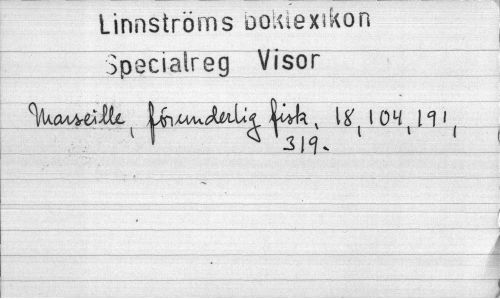 Linnströms boklexikon
Specialreg Visor
Marseille, förunderlig fisk. 18, 104, 191,
319.